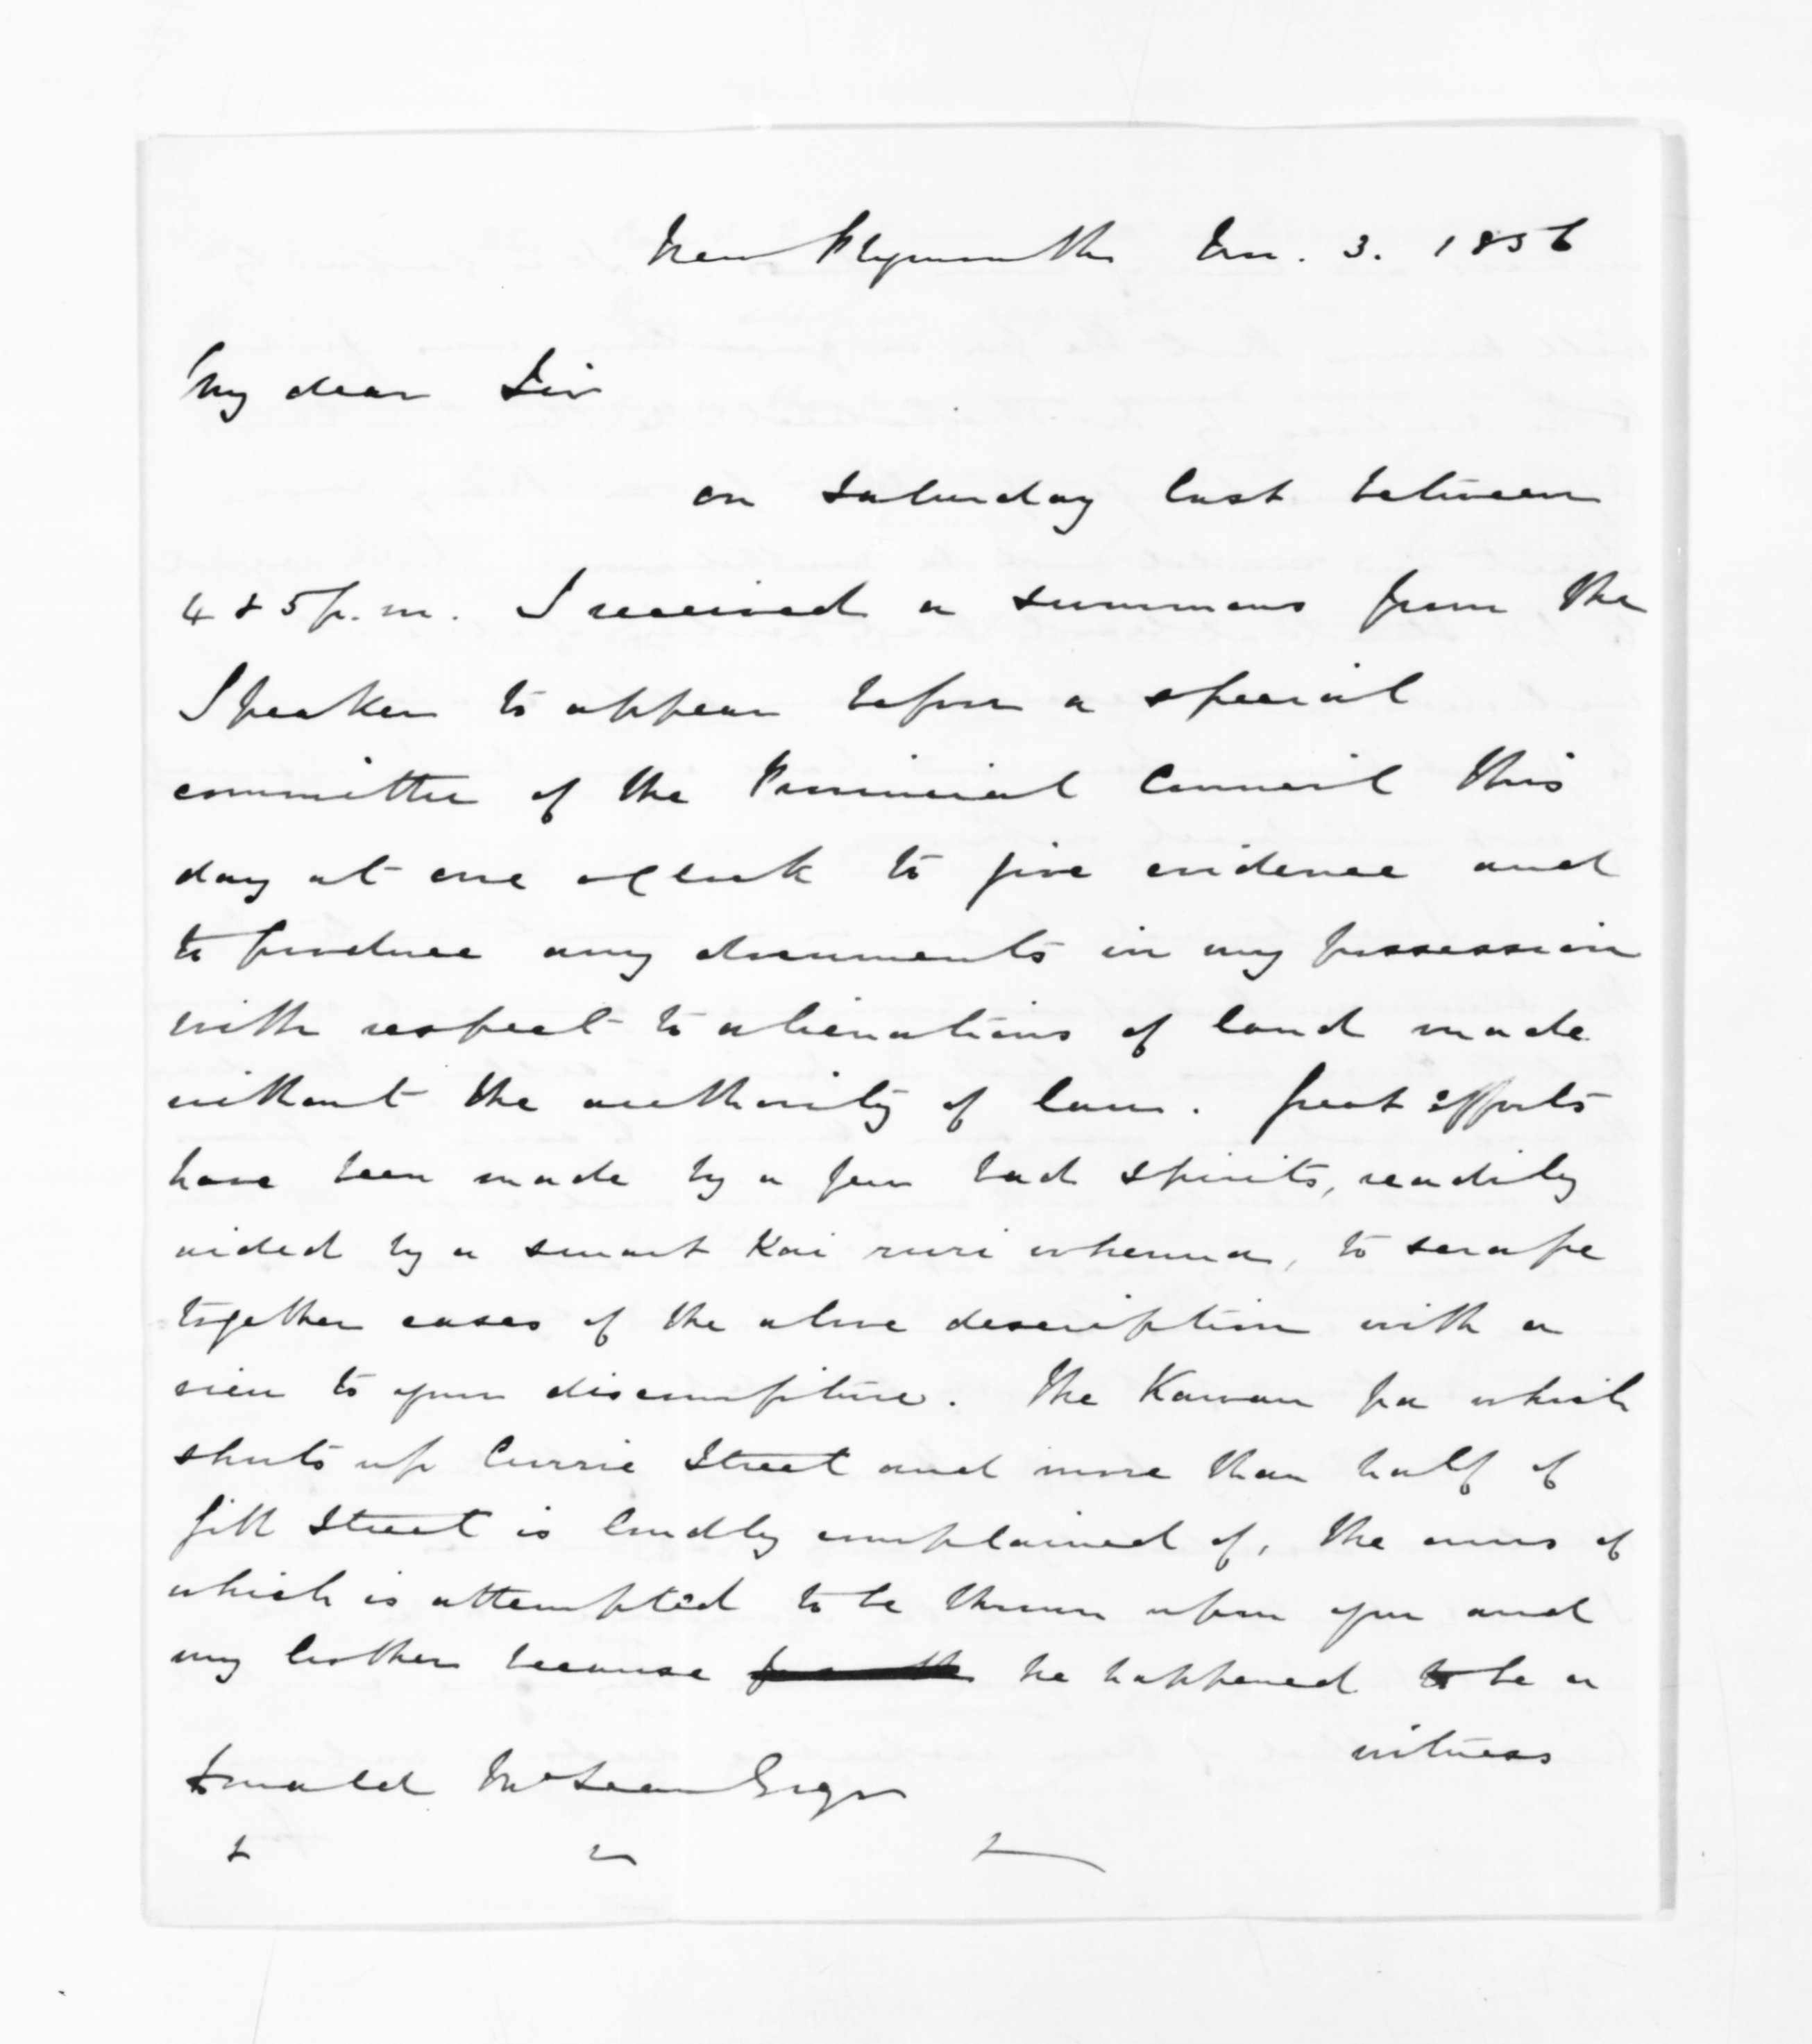 New Plymouth Nov. 3. 1856
My dear Sir
on Saturday last between
4 & 5 p.m. I received a summons from the
Speaker to appear before a special
committee of the Provincial Council this
day at one o'clock to give evidence and
to produce any documents in my possession
with respect to alienations of land made
without the authority of law. Great efforts
have been made by a few bad spirits, readily
aided by a smart Kai ruri whenua, to scrape
together cases of the above description with a
view to your discomfiture. The Kawau pa which
shuts up Currie Street and more than half of
Gill Street is loudly complained of, the onus of
which is attempted to be thrown upon you and
my brother because he happened to be a
witness
Donald McLean Esqr
& & &